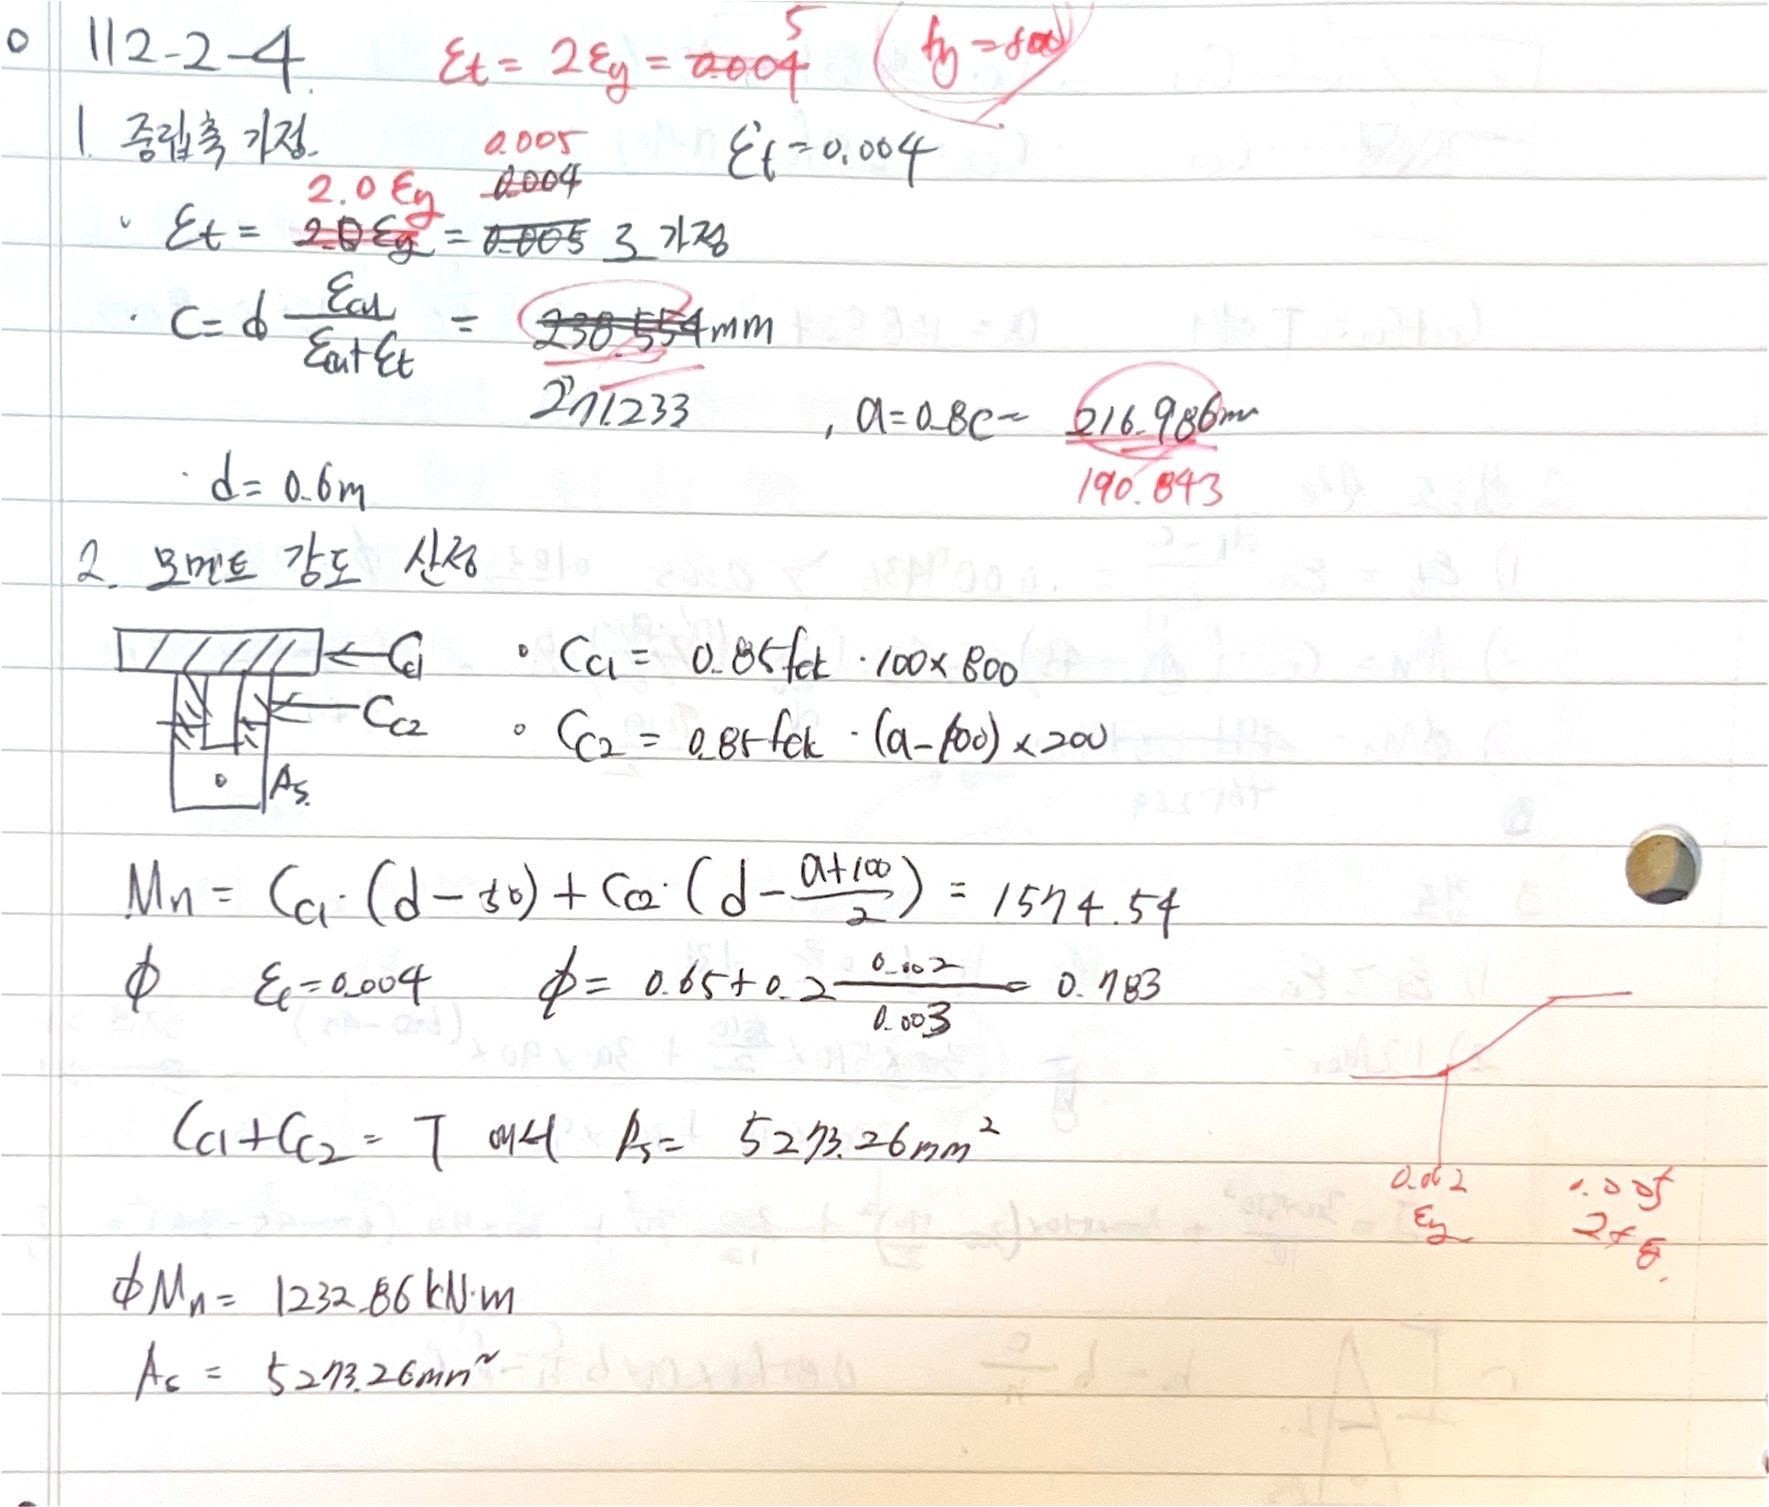 112-2-4. εt = 2εy = 0.004 5 (fy = 500)
1. 중립축 가정. εt = 0.004
0.005
2.0 εy 0.004
· εt = 2.0 εy = 0.005 로 가정
· C = d εcu / (εcu + εt) = 230.554 mm
271.233 , a = 0.8C = 216.986 mm
190.843
· d = 0.6m
2. 모멘트 강도 산정
← Cc1 · Cc1 = 0.85fck · 100 × 800
← Cc2 · Cc2 = 0.85fck · (a - 100) × 200
As.
Mn = Cc1 · (d - 50) + Cc2 · (d - (a+100)/2) = 1574.54
φ εt = 0.004 φ = 0.65 + 0.2 0.002/0.003 = 0.783
Cc1 + Cc2 = T 에서 As = 5273.26mm²
0.002 0.005
εy 2.5 εy
φMn = 1232.86 kN·m
As = 5273.26mm²